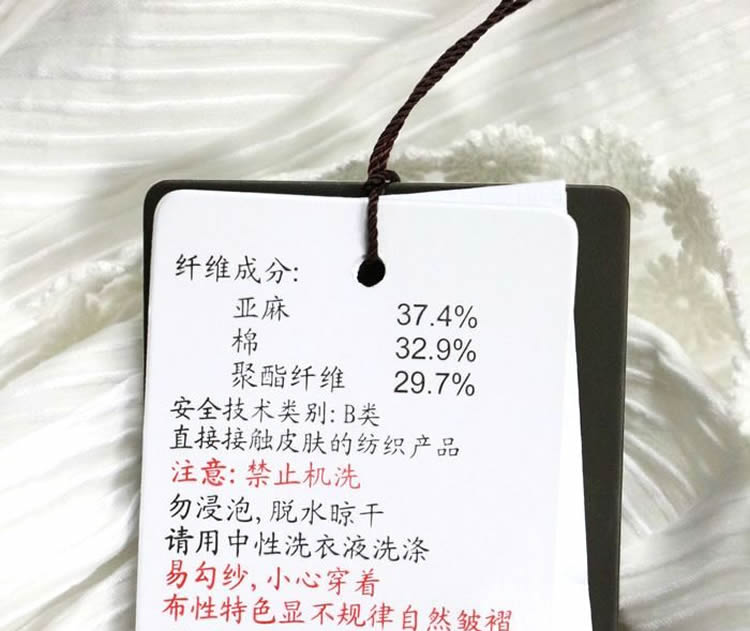 纤维成分:
亚麻 37.4%
棉 32.9%
聚酯纤维 29.7%
安全技术类别: B类
直接接触皮肤的纺织产品
注意: 禁止机洗
勿浸泡, 脱水晾干
请用中性洗衣液洗涤
易勾纱, 小心穿着
布性特色显不规律自然皱褶